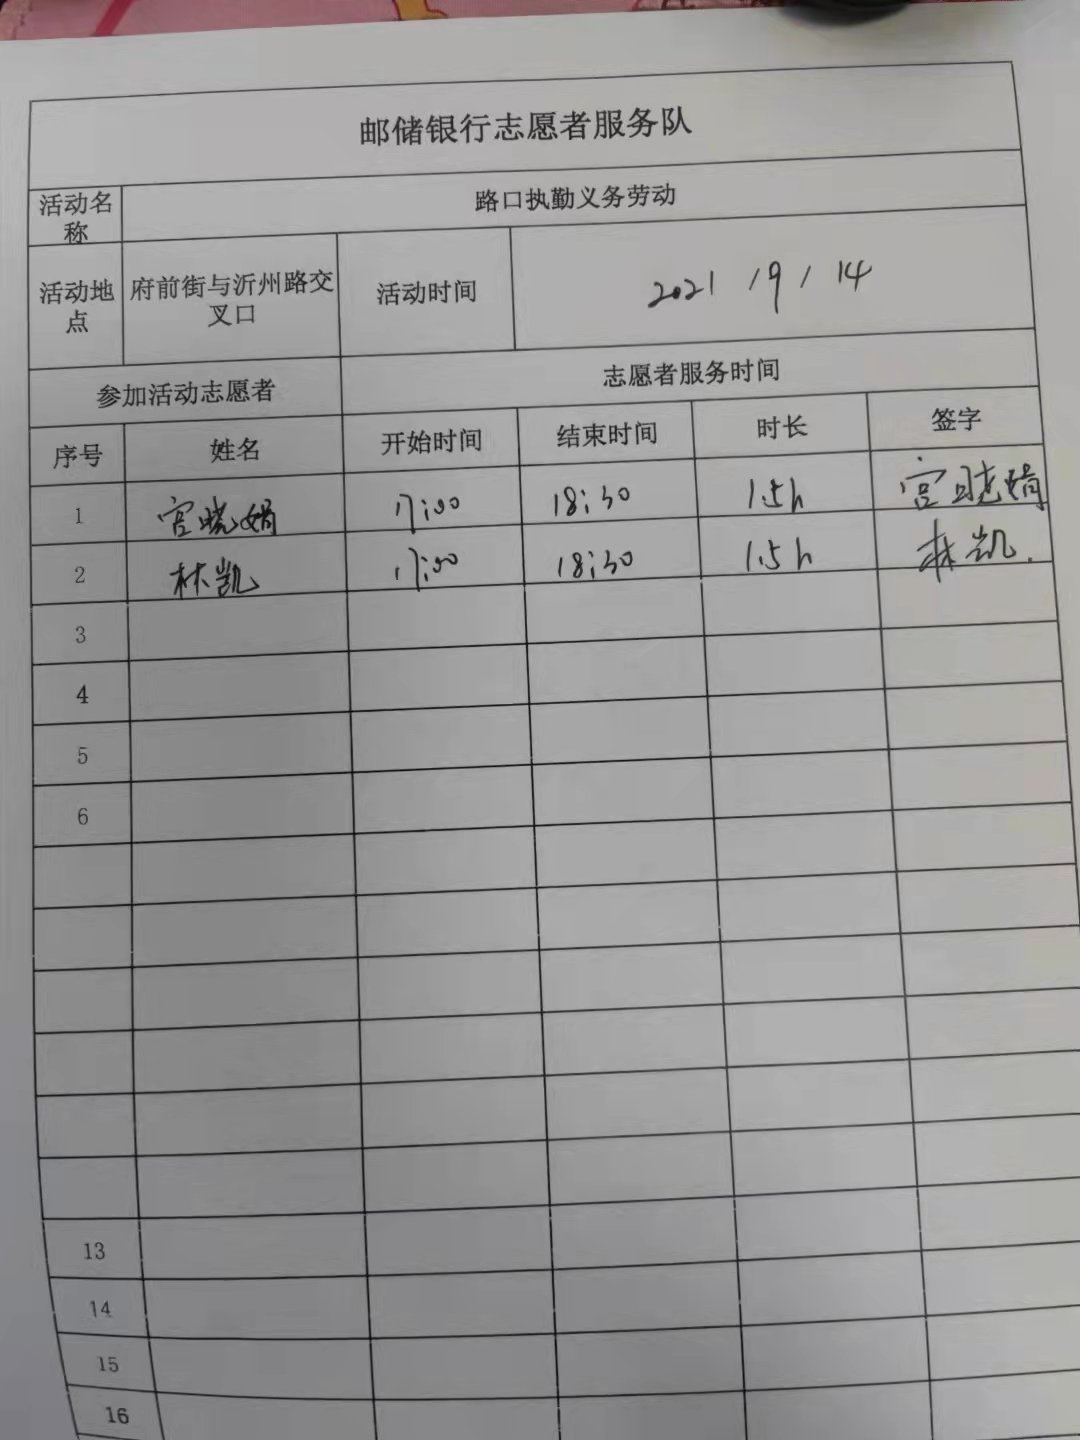 邮储银行志愿者服务队
活动名称 路口执勤义务劳动
活动地点 府前街与沂州路交叉口 活动时间 2021/9/14
参加活动志愿者 志愿者服务时间
序号 姓名 开始时间 结束时间 时长 签字
1 宫晓娟 17:00 18:30 1.5h 宫晓娟
2 林凯 17:00 18:30 1.5h 林凯.
3
4
5
6
13
14
15
16